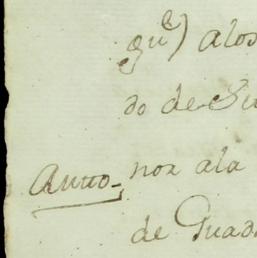 qu⁠e) alos
do de Su
Anno nor ala
de Guad